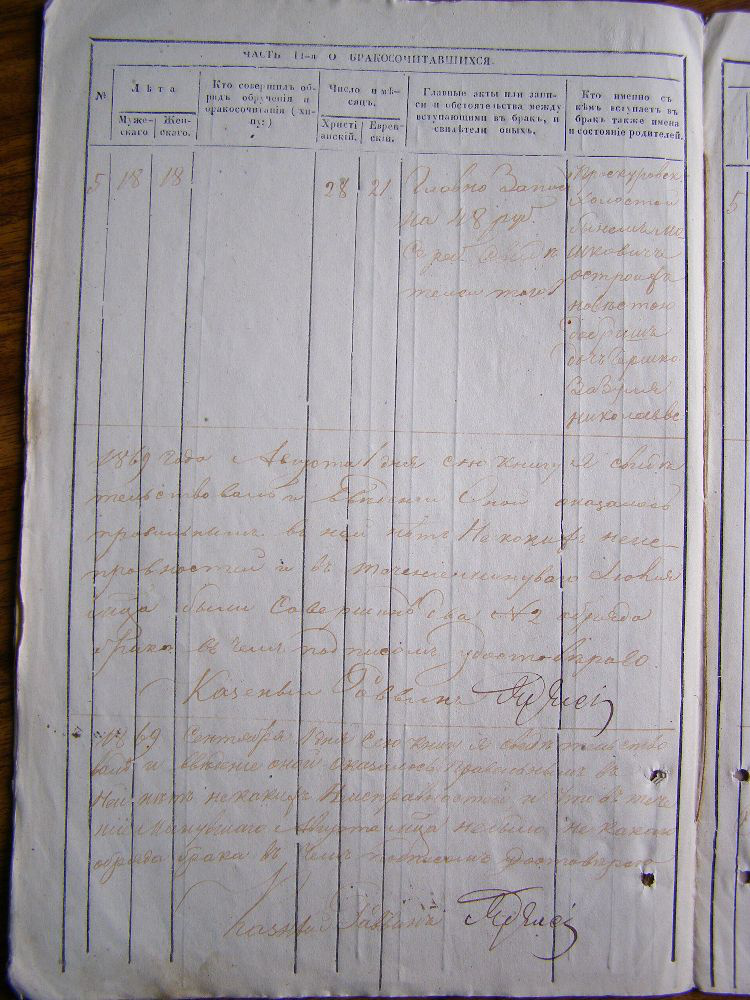 ЧАСТЬ II-я О БРАКОСОЧИТАВШИХСЯ.
№
Лѣта
Муже-
скаго
Жен-
скаго.
Кто совершилъ об-
рядъ обрученія и
бракосочитанія (хи-
пу:)
Число и мѣ-
сяцъ.
Христі
анскій.
Еврей-
скій.
Главные акты или запи-
си и обстоятельства между
вступающими въ бракъ, и
свидѣтели оныхъ.
Кто именно съ
кѣмъ вступаетъ въ
бракъ также имена
и состояніе родителей.
5
18
18
28
21
Главно Запис
на 48 руб.
Сереб. Свидѣ
тели тогожъ
Проскуровск
Холостой
Мо
шковичъ
невѣстою
Гершко
Николаевс
1869 года Августа 1 дня сию книгу я свидѣ
тельствовалъ и введеніи Оной оказалось
правильнымъ въ ней нѣтъ Никакихъ неис-
правностей и въ теченіи минуваго Июлия
м-ца были Совершины два №2 обряда
брака въ чемъ подписомъ удостоверяю.
Казеный Раввинъ
1869 Сентября 1 дня Сию книгу я свидѣтельство
валъ и введеніе оной оказалось Правильнымъ въ
Ней нѣтъ некакихъ Неисправностей и что въ тече
ніи Минувшаго Августа м-ца небыло некакого
обряда брака въ чемъ подписомъ Удостоверяю
Казенный Раввинъ
5